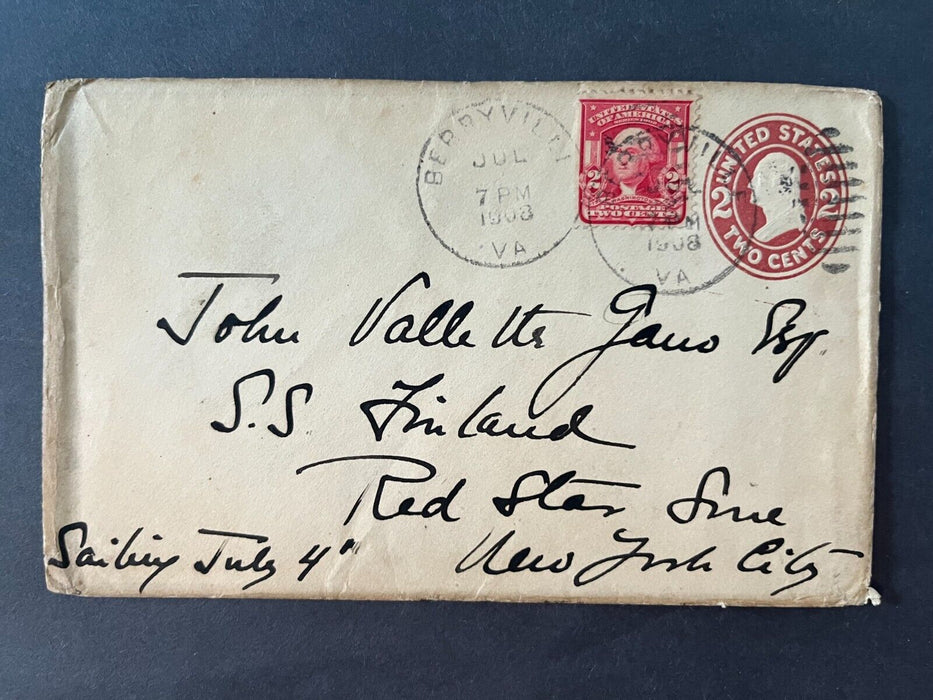 BERRYVILLE
JUL
7 PM
1908
VA
UNITED STATES
OF AMERICA
SERIES 1902
2 2
WASHINGTON
POSTAGE
TWO CENTS
1908
VA
UNITED STATES
2 2
TWO CENTS
John Vallette Gano Esq.
S.S. Finland
Red Star Line
Sailing July 4th New York City